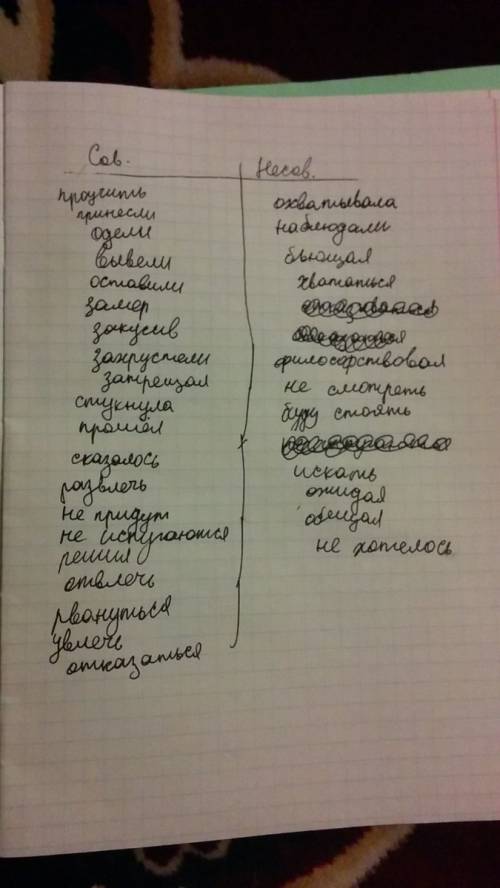 Сов.
проучить
принесли
одели
вывели
оставили
замер
закусив
захрустели
затрещал
стукнула
прошёл
сказалось
развлечь
не придут
не испугаются
решил
отвлечь
рвануться
увлечь
отказаться
Несов.
охватывала
наблюдали
бьющая
хвататься
философствовал
не смотреть
буду стоять
искать
ожидая
обещая
не хотелось